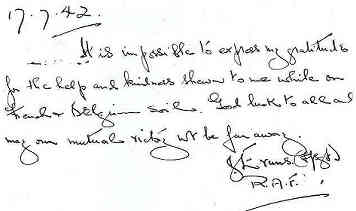 17.7.42.
It is impossible to express my gratitude
for the help and kindness shewn to me while on
French & Belgium soil. Good luck to all and
may our mutual victory not be far away.
R.A.F.